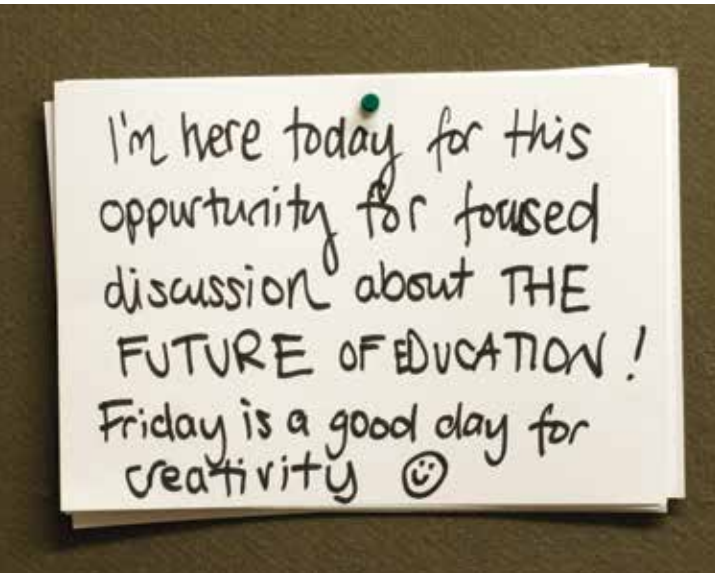 I'm here today for this
oppurtunity for foused
discussion about THE
FUTURE OF EDUCATION!
Friday is a good day for
creativity ☺